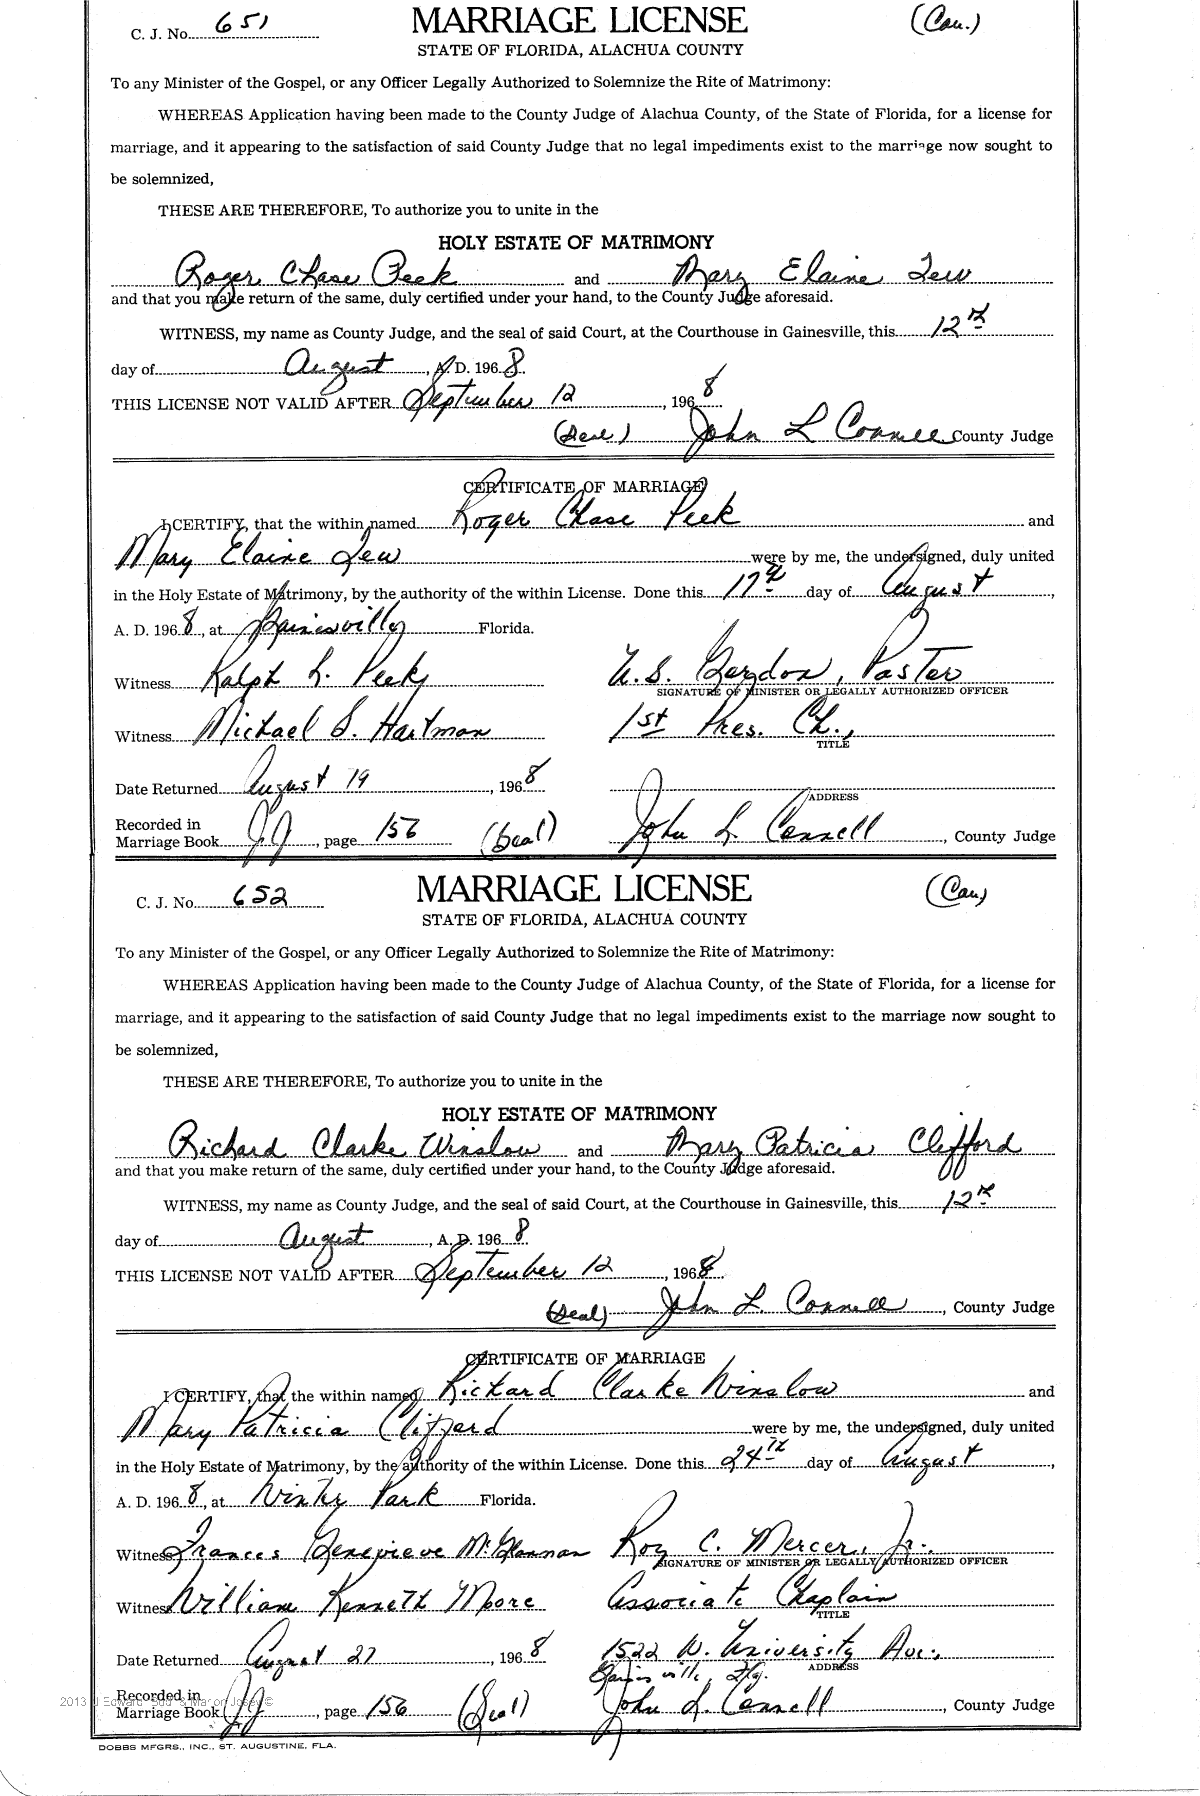 C. J. No. 651 MARRIAGE LICENSE (Cau.)
STATE OF FLORIDA, ALACHUA COUNTY
To any Minister of the Gospel, or any Officer Legally Authorized to Solemnize the Rite of Matrimony:
WHEREAS Application having been made to the County Judge of Alachua County, of the State of Florida, for a license for
marriage, and it appearing to the satisfaction of said County Judge that no legal impediments exist to the marriage now sought to
be solemnized,
THESE ARE THEREFORE, To authorize you to unite in the
HOLY ESTATE OF MATRIMONY
Roger Chase Peek and Mary Elaine Lew
and that you make return of the same, duly certified under your hand, to the County Judge aforesaid.
WITNESS, my name as County Judge, and the seal of said Court, at the Courthouse in Gainesville, this 12th
day of August, A. D. 1968.
THIS LICENSE NOT VALID AFTER September 12, 1968
(Seal) John L Connell County Judge
CERTIFICATE OF MARRIAGE
I CERTIFY, that the within named Roger Chase Peek and
Mary Elaine Lew were by me, the undersigned, duly united
in the Holy Estate of Matrimony, by the authority of the within License. Done this 17th day of August,
A. D. 1968, at Gainesville Florida.
Witness Ralph L. Peek U. S. Gordon, Pastor
SIGNATURE OF MINISTER OR LEGALLY AUTHORIZED OFFICER
Witness Michael S. Hartman 1st Pres. Ch.,
TITLE
Date Returned August 19, 1968
ADDRESS
Recorded in
Marriage Book JJ, page 156 (Seal) John L. Connell, County Judge
C. J. No. 652 MARRIAGE LICENSE (Cau)
STATE OF FLORIDA, ALACHUA COUNTY
To any Minister of the Gospel, or any Officer Legally Authorized to Solemnize the Rite of Matrimony:
WHEREAS Application having been made to the County Judge of Alachua County, of the State of Florida, for a license for
marriage, and it appearing to the satisfaction of said County Judge that no legal impediments exist to the marriage now sought to
be solemnized,
THESE ARE THEREFORE, To authorize you to unite in the
HOLY ESTATE OF MATRIMONY
Richard Clarke Winslow and Mary Patricia Clifford
and that you make return of the same, duly certified under your hand, to the County Judge aforesaid.
WITNESS, my name as County Judge, and the seal of said Court, at the Courthouse in Gainesville, this 12th
day of August, A. D. 1968.
THIS LICENSE NOT VALID AFTER September 12, 1968.
(Seal) John L. Connell, County Judge
CERTIFICATE OF MARRIAGE
I CERTIFY, that the within named Richard Clarke Winslow and
Mary Patricia Clifford were by me, the undersigned, duly united
in the Holy Estate of Matrimony, by the authority of the within License. Done this 24th day of August,
A. D. 1968, at Winter Park Florida.
Witness Frances Genevieve Roy C. Mercer, Jr.
SIGNATURE OF MINISTER OR LEGALLY AUTHORIZED OFFICER
Witness William Kenneth Moore Associate Chaplain
TITLE
Date Returned August 27, 1968 1522 W. University Ave.,
ADDRESS
Gainesville, Fla.
Recorded in
Marriage Book JJ, page 156 (Seal) John L. Connell, County Judge
DOBBS MFGRS., INC., ST. AUGUSTINE, FLA.